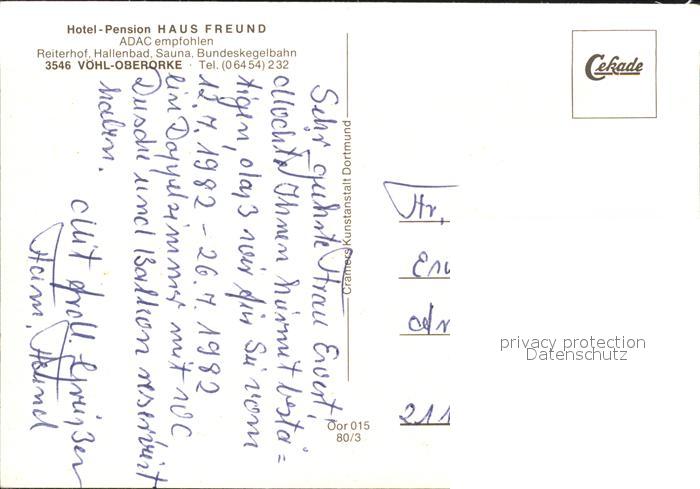 Hotel-Pension HAUS FREUND
ADAC empfohlen
Reiterhof, Hallenbad, Sauna, Bundeskegelbahn
3546 VÖHL-OBERORKE · Tel. (06454) 232
Cekade
Cramers Kunstanstalt Dortmund
Sehr geehrte Frau Evert,
Möchte Ihnen hiermit bestä=
tigen, daß wir für Sie vom
12.7.1982 - 26.7.1982
ein Doppelzimmer mit WC
Dusche und Balkon reserviert
haben.
Mit frdl. Grüßen
Freund
Oor 015
80/3
211
privacy protection
Datenschutz